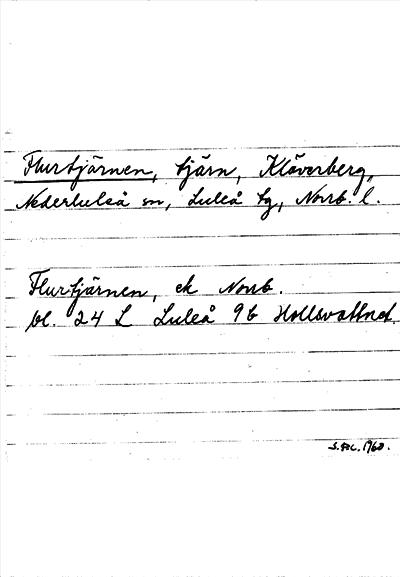 Flurtjärnen, tjärn, Klöverberg,
Nederluleå sn, Luleå tg, Norrb. l.
Flurtjärnen, ek Norrb.
bl. 24 L Luleå 9b Hollsvattnet.
1960.